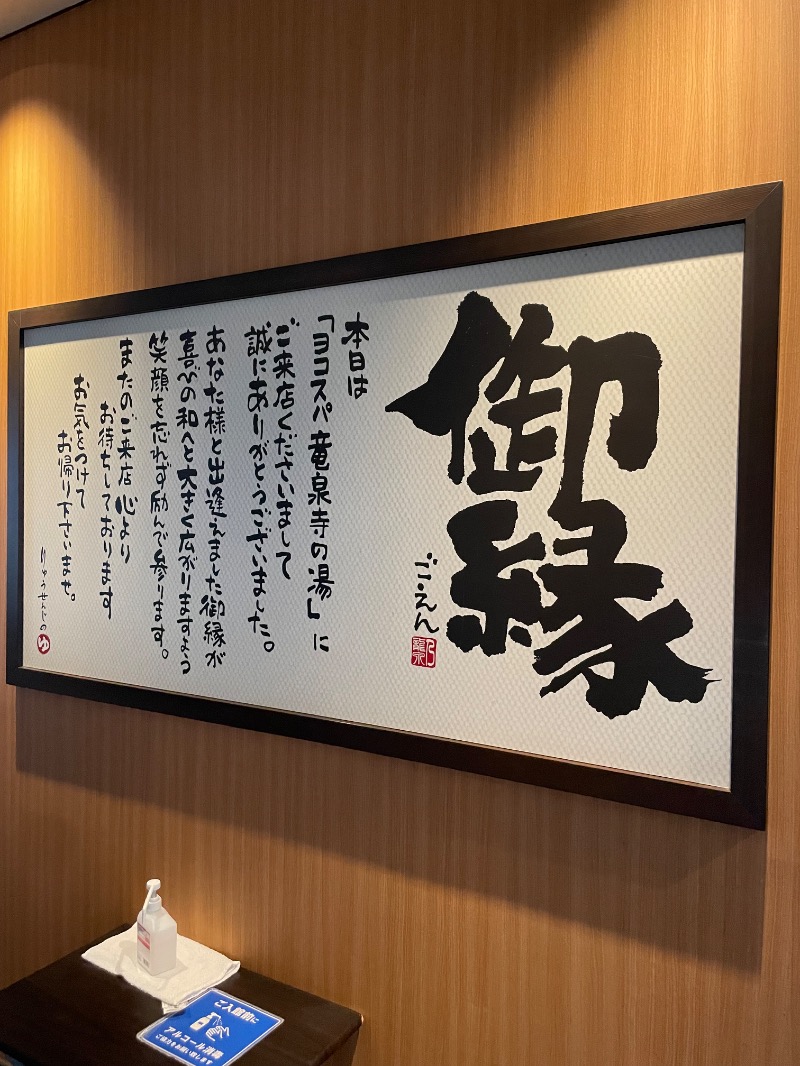 御縁
ご・えん
本日は
「ヨコスパ竜泉寺の湯」に
ご来店くださいまして
誠にありがとうございました。
あなた様と出逢えました御縁が
喜びの和へと大きく広がりますよう
笑顔を忘れず励んで参ります。
またのご来店 心より
お待ちしております
お気をつけて
お帰り下さいませ。
りゅうせんじの
ゆ
ご入館前に
アルコール消毒
ご協力をお願い致します